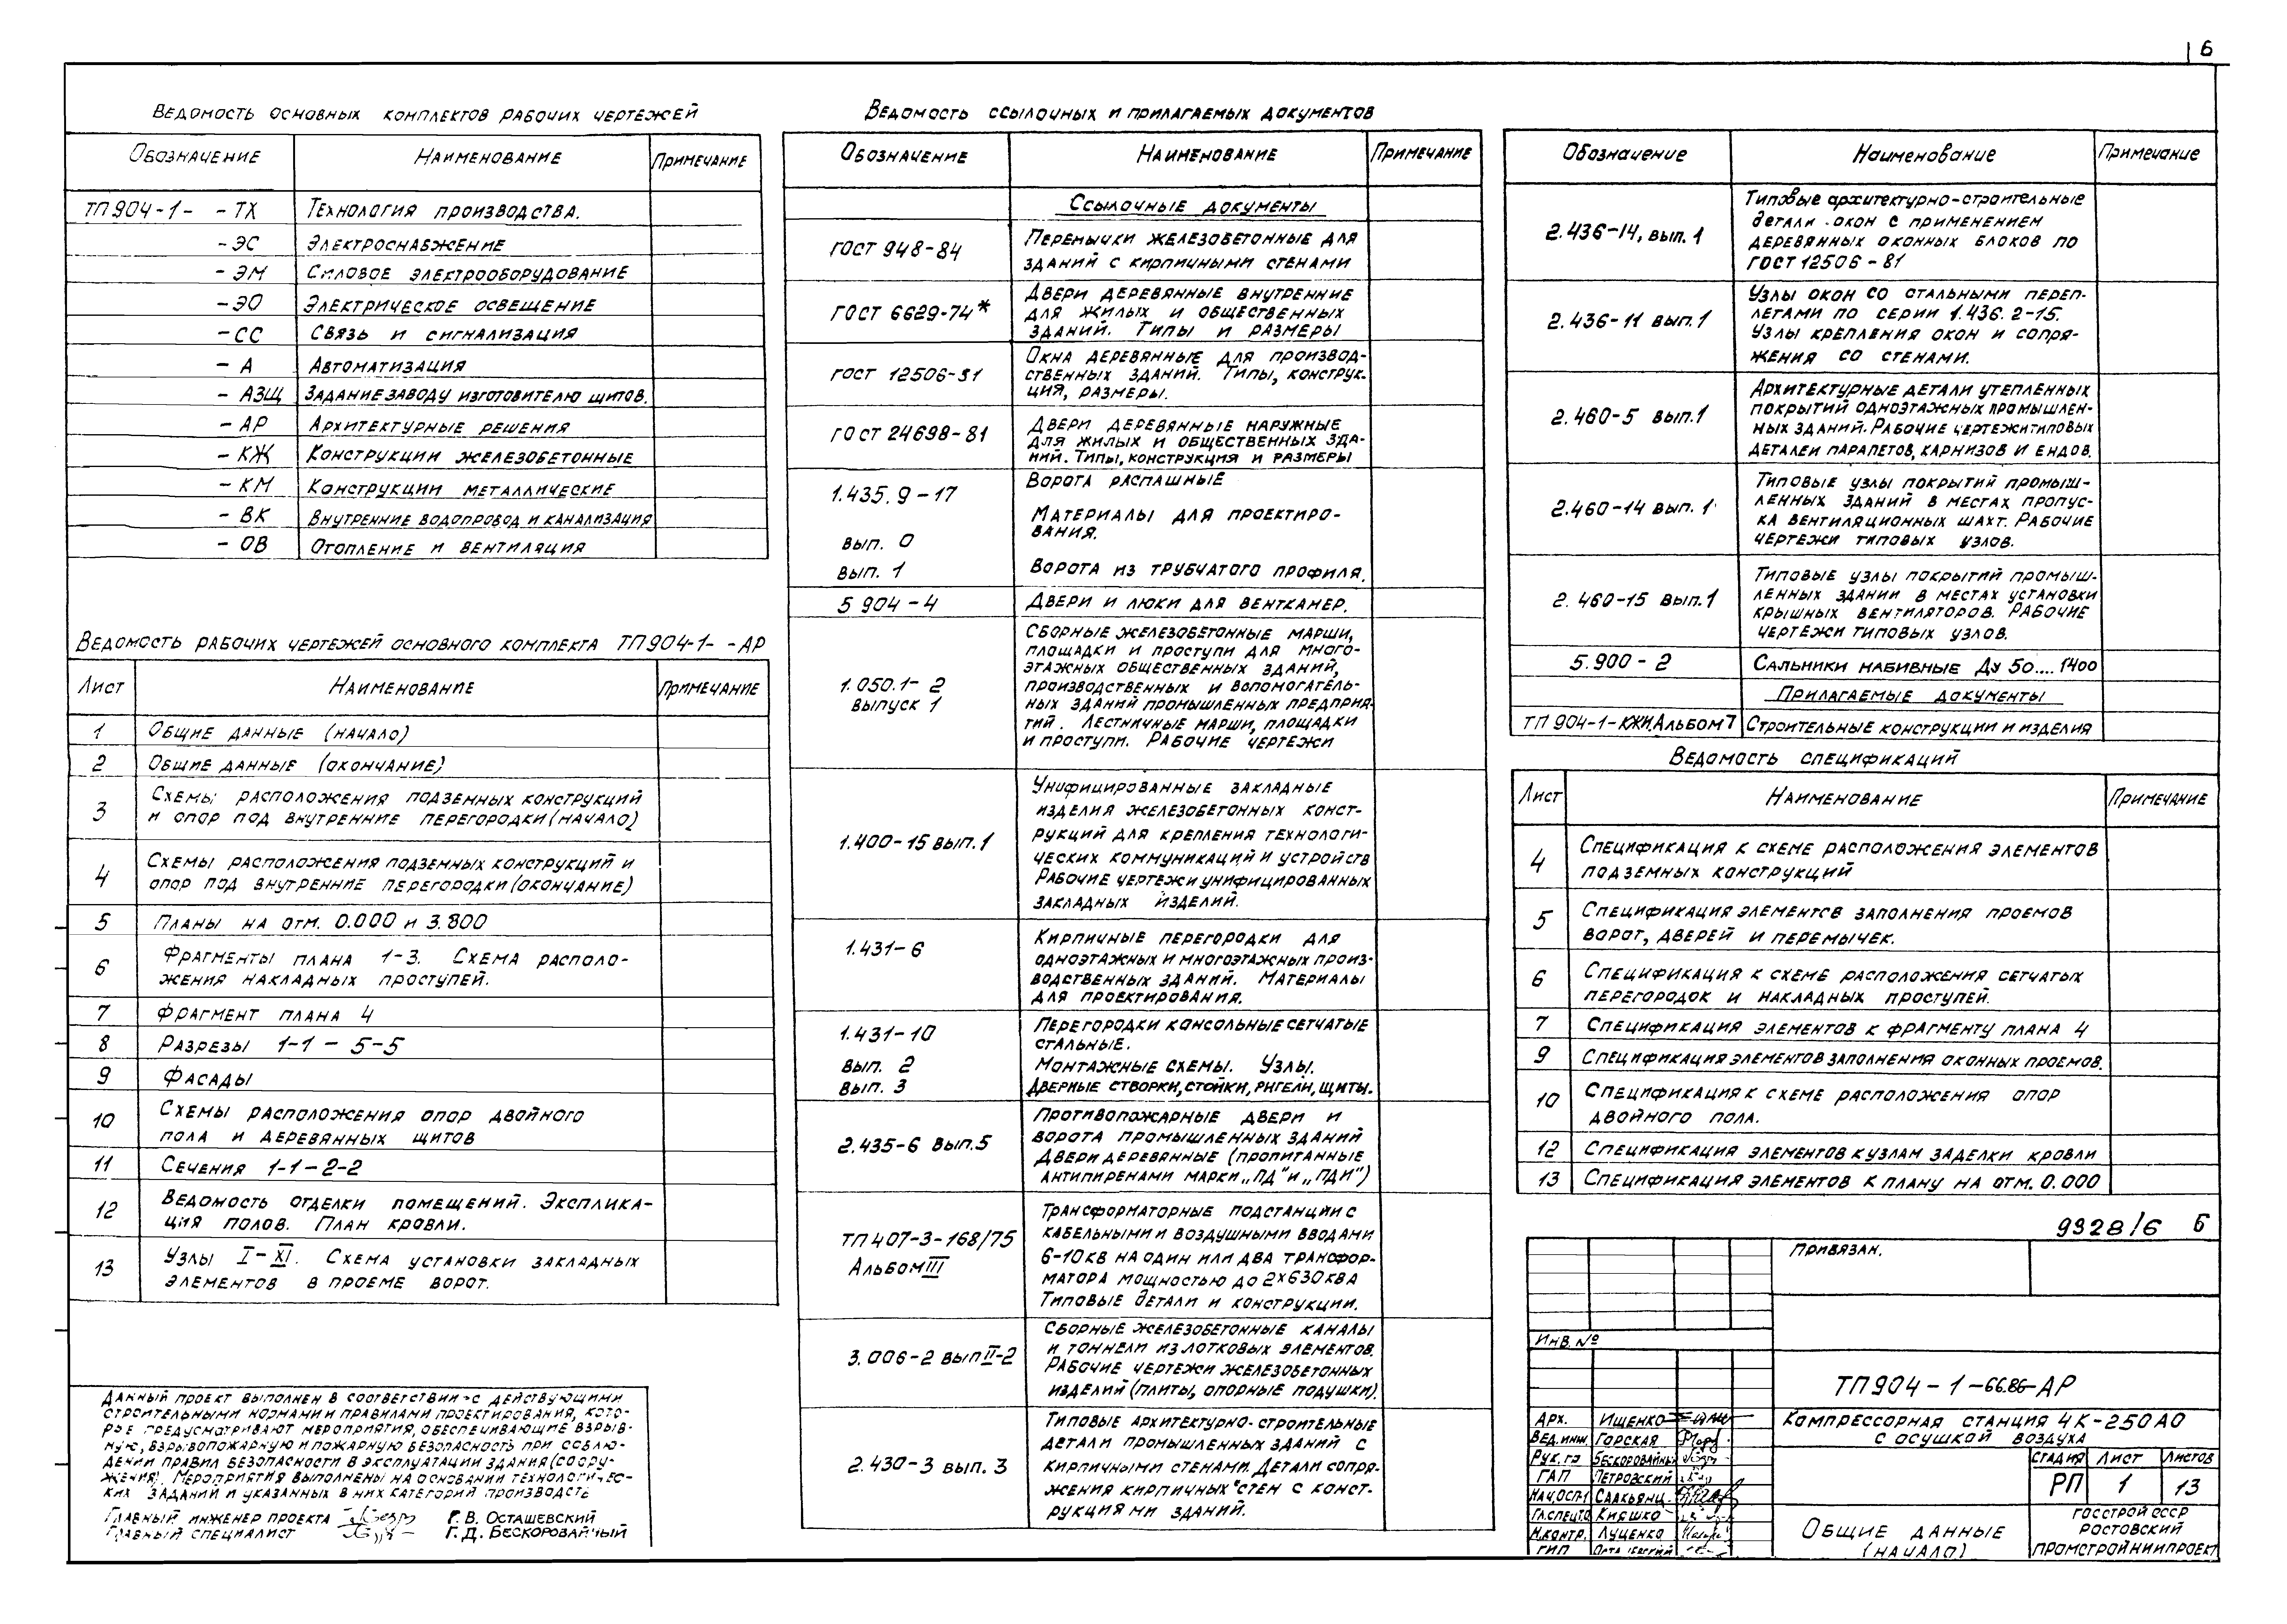 6
Ведомость основных комплектов рабочих чертежей
Обозначение Наименование Примечание
ТП904-1- -ТХ Технология производства.
-ЭС Электроснабжение
-ЭМ Силовое электрооборудование
-ЭО Электрическое освещение
-СС Связь и сигнализация
-А Автоматизация
-АЗЩ Задание заводу изготовителю щитов.
-АР Архитектурные решения
-КЖ Конструкции железобетонные
-КМ Конструкции металлические
-ВК Внутренние водопровод и канализация
-ОВ Отопление и вентиляция
Ведомость рабочих чертежей основного комплекта ТП904-1- -АР
Лист Наименование Примечание
1 Общие данные (начало)
2 Общие данные (окончание)
3 Схемы расположения подземных конструкций
и опор под внутренние перегородки (начало)
4 Схемы расположения подземных конструкций и
опор под внутренние перегородки (окончание)
5 Планы на отм. 0.000 и 3.800
6 Фрагменты плана 1-3. Схема располо-
жения накладных проступей.
7 Фрагмент плана 4
8 Разрезы 1-1 – 5-5
9 Фасады
10 Схемы расположения опор двойного
пола и деревянных щитов
11 Сечения 1-1 – 2-2
12 Ведомость отделки помещений. Эксплика-
ция полов. План кровли.
13 Узлы I-XI. Схема установки закладных
элементов в проеме ворот.
Данный проект выполнен в соответствии с действующими
строительными нормами и правилами проектирования, кото-
рые предусматривают мероприятия, обеспечивающие взрыв-
ную, взрывопожарную и пожарную безопасность при соблю-
дении правил безопасности в эксплуатации здания (соору-
жения). Мероприятия выполнены на основании технологичес-
ких заданий и указанных в них категорий производств
Главный инженер проекта Г. В. Осташевский
Главный специалист Г. Д. Бескоровайный
Ведомость ссылочных и прилагаемых документов
Обозначение Наименование Примечание
Ссылочные документы
ГОСТ 948-84 Перемычки железобетонные для
зданий с кирпичными стенами
ГОСТ 6629-74* Двери деревянные внутренние
для жилых и общественных
зданий. Типы и размеры
ГОСТ 12506-81 Окна деревянные для производ-
ственных зданий. Типы, конструк-
ция, размеры.
ГОСТ 24698-81 Двери деревянные наружные
для жилых и общественных зда-
ний. Типы, конструкция и размеры
1.435.9-17 Ворота распашные
Материалы для проектиро-
вып. 0 вания.
вып. 1 Ворота из трубчатого профиля.
5 904-4 Двери и люки для венткамер.
Сборные железобетонные марши,
площадки и проступи для много-
этажных общественных зданий,
1.050.1-2 производственных и вопомогатель-
выпуск 1 ных зданий промышленных предприя-
тий. Лестничные марши, площадки
и проступи. Рабочие чертежи
Унифицированные закладные
изделия железобетонных конст-
1.400-15 вып.1 рукций для крепления технологи-
ческих коммуникаций и устройств
Рабочие чертежи унифицированных
закладных изделий.
1.431-6 Кирпичные перегородки для
одноэтажных и многоэтажных произ-
водственных зданий. Материалы
для проектирования.
1.431-10 Перегородки консольные сетчатые
стальные.
вып. 2 Монтажные схемы. Узлы.
вып. 3 Дверные створки, стойки, ригели, щиты.
Противопожарные двери и
2.435-6 вып.5 ворота промышленных зданий
Двери деревянные (пропитанные
антипиренами марки „ПД" и „ПДИ")
Трансформаторные подстанции с
ТП407-3-168/75 кабельными и воздушными вводами
Альбом III 6-10кв на один или два трансфор-
матора мощностью до 2×630кВА
Типовые детали и конструкции.
Сборные железобетонные каналы
3.006-2 вып II-2 и тоннели из лотковых элементов.
Рабочие чертежи железобетонных
изделий (плиты, опорные подушки).
Типовые архитектурно-строительные
детали промышленных зданий с
2.430-3 вып. 3 кирпичными стенами. Детали сопря-
жения кирпичных стен с конст-
рукциями зданий.
Обозначение Наименование Примечание
Типовые архитектурно-строительные
2.436-14, вып. 1 детали окон с применением
деревянных оконных блоков по
ГОСТ 12506-81
Узлы окон со стальными переп-
2.436-11 вып.1 летами по серии 1.436.2-15.
Узлы крепления окон и сопря-
жения со стенами.
Архитектурные детали утепленных
2.460-5 вып.1 покрытий одноэтажных промышлен-
ных зданий. Рабочие чертежи типовых
деталей парапетов, карнизов и ендов.
Типовые узлы покрытий промыш-
2.460-14 вып. 1 ленных зданий в местах пропус-
ка вентиляционных шахт. Рабочие
чертежи типовых узлов.
Типовые узлы покрытий промыш-
2.460-15 вып.1 ленных здании в местах установки
крышных вентиляторов. Рабочие
чертежи типовых узлов.
5.900-2 Сальники набивные Ду 50....1400
Прилагаемые документы
ТП 904-1-КЖИ.Альбом7 Строительные конструкции и изделия
Ведомость спецификаций
Лист Наименование Примечание
4 Спецификация к схеме расположения элементов
подземных конструкций
5 Спецификация элементов заполнения проемов
ворот, дверей и перемычек.
6 Спецификация к схеме расположения сетчатых
перегородок и накладных проступей.
7 Спецификация элементов к фрагменту плана 4
9 Спецификация элементов заполнения оконных проемов.
10 Спецификация к схеме расположения опор
двойного пола.
12 Спецификация элементов к узлам заделки кровли
13 Спецификация элементов к плану на отм. 0.000
9328/6 6
Привязан.
Инв. №
ТП904-1-66.86-АР
Арх. Ищенко
Вед.инж. Горская
Рук. гр Бескоровайный
ГАП Петровский
Нач.осп-1 Саакьянц
Гл.спец.то Кияшко
Н.контр. Луценко
ГИП Осташевский
Компрессорная станция 4К-250АО
с осушкой воздуха
Стадия Лист Листов
РП 1 13
Общие данные
(начало)
Госстрой СССР
Ростовский
Промстройниипроект